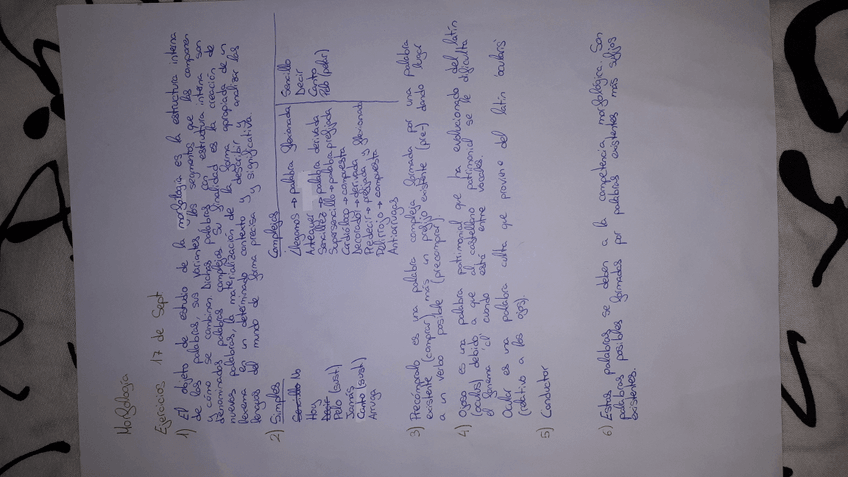 Morfología
Ejercicios 17 de Sept
1) El objeto de estudio de la morfología es la estructura interna
de las palabras, sus variantes, los segmentos que las componen
y cómo se combinan. Dichas palabras con estructura interna son
denominadas palabras complejas. Su finalidad es la creación de
nuevas palabras, la materialización de la forma apropiada de un
lexema en un determinado contexto y describir y analizar las
lenguas del mundo de forma precisa y significativa.
2) Simples
Sencillo No
Hoy
Decir
Pelo (sust)
Jamás
Canto (sust)
Arruga
Complejas
Llegamos → palabra flexionada
Anteayer
Sencillez → palabra derivada
Supersencillo → palabra prefijada
Cardiólogo → compuesta
Decorador → derivada
Predecir → prefijada y flexionada
Pelirrojo → compuesta
Antiarrugas
Sencillo
Decir
Canto
Pelo (pelar)
3) Precomprado es una palabra compleja formada por una palabra
existente (comprar) más un prefijo existente (pre-) dando lugar
a un verbo posible (precomprar).
4) Ojoso es una palabra patrimonial que ha evolucionado del latín
(oculus) debido a que al castellano patrimonial se le dificulta
el fonema 'cl' cuando está entre vocales.
Ocular es una palabra culta que proviene del latín ocularis
(relativo a los ojos).
5) Conductor
6) Estas palabras se deben a la competencia morfológica. Son
palabras posibles formadas por palabras existentes más afijos
existentes.